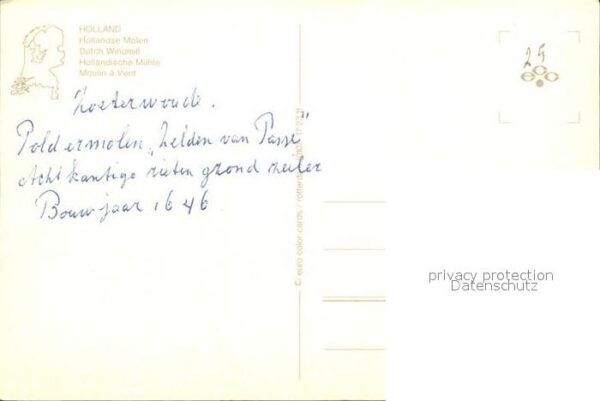 HOLLAND
Hollandse Molen
Dutch Windmill
Holländische Mühle
Moulin à Vent
Zoeterwoude.
Poldermolen „Zelden van Passe"
Achtkantige rieten grondzeiler
Bouwjaar 1646
© euro color cards / rotterdam
25
privacy protection
Datenschutz